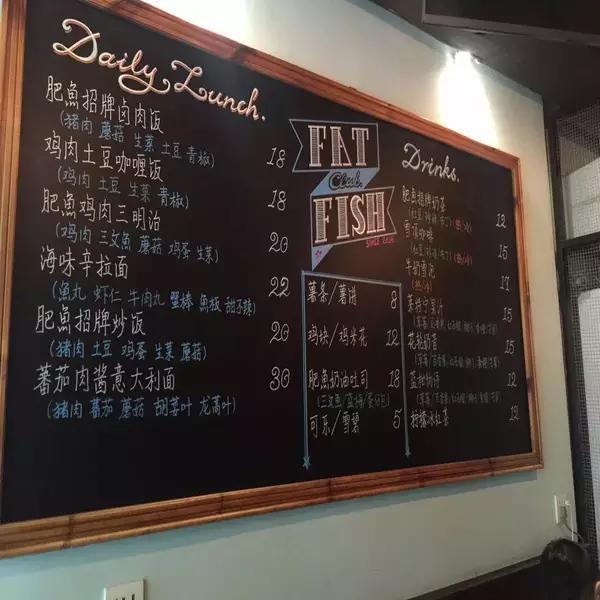 Daily Lunch.
肥魚招牌卤肉饭 18
(猪肉 蘑菇 生菜 土豆 青椒)
鸡肉土豆咖喱饭 18
(鸡肉 土豆 生菜 青椒)
肥魚鸡肉三明治 20
(鸡肉 三文魚 蘑菇 鸡蛋 生菜)
海味辛拉面 22
(魚丸 虾仁 牛肉丸 蟹棒 魚板 甜不辣)
肥魚招牌炒饭 20
(猪肉 土豆 鸡蛋 生菜 蘑菇)
蕃茄肉酱意大利面 30
(猪肉 蕃茄 蘑菇 胡萝叶 龙蒿叶)
FAT
Club
FISH
SINCE
薯条/薯饼 8
鸡块/鸡米花 12
肥魚奶油吐司 18
可乐/雪碧 5
Drinks.
肥魚招牌奶茶 12
雪顶咖啡 15
牛奶雪泥 17
15
15
12
柠檬冰红茶 12